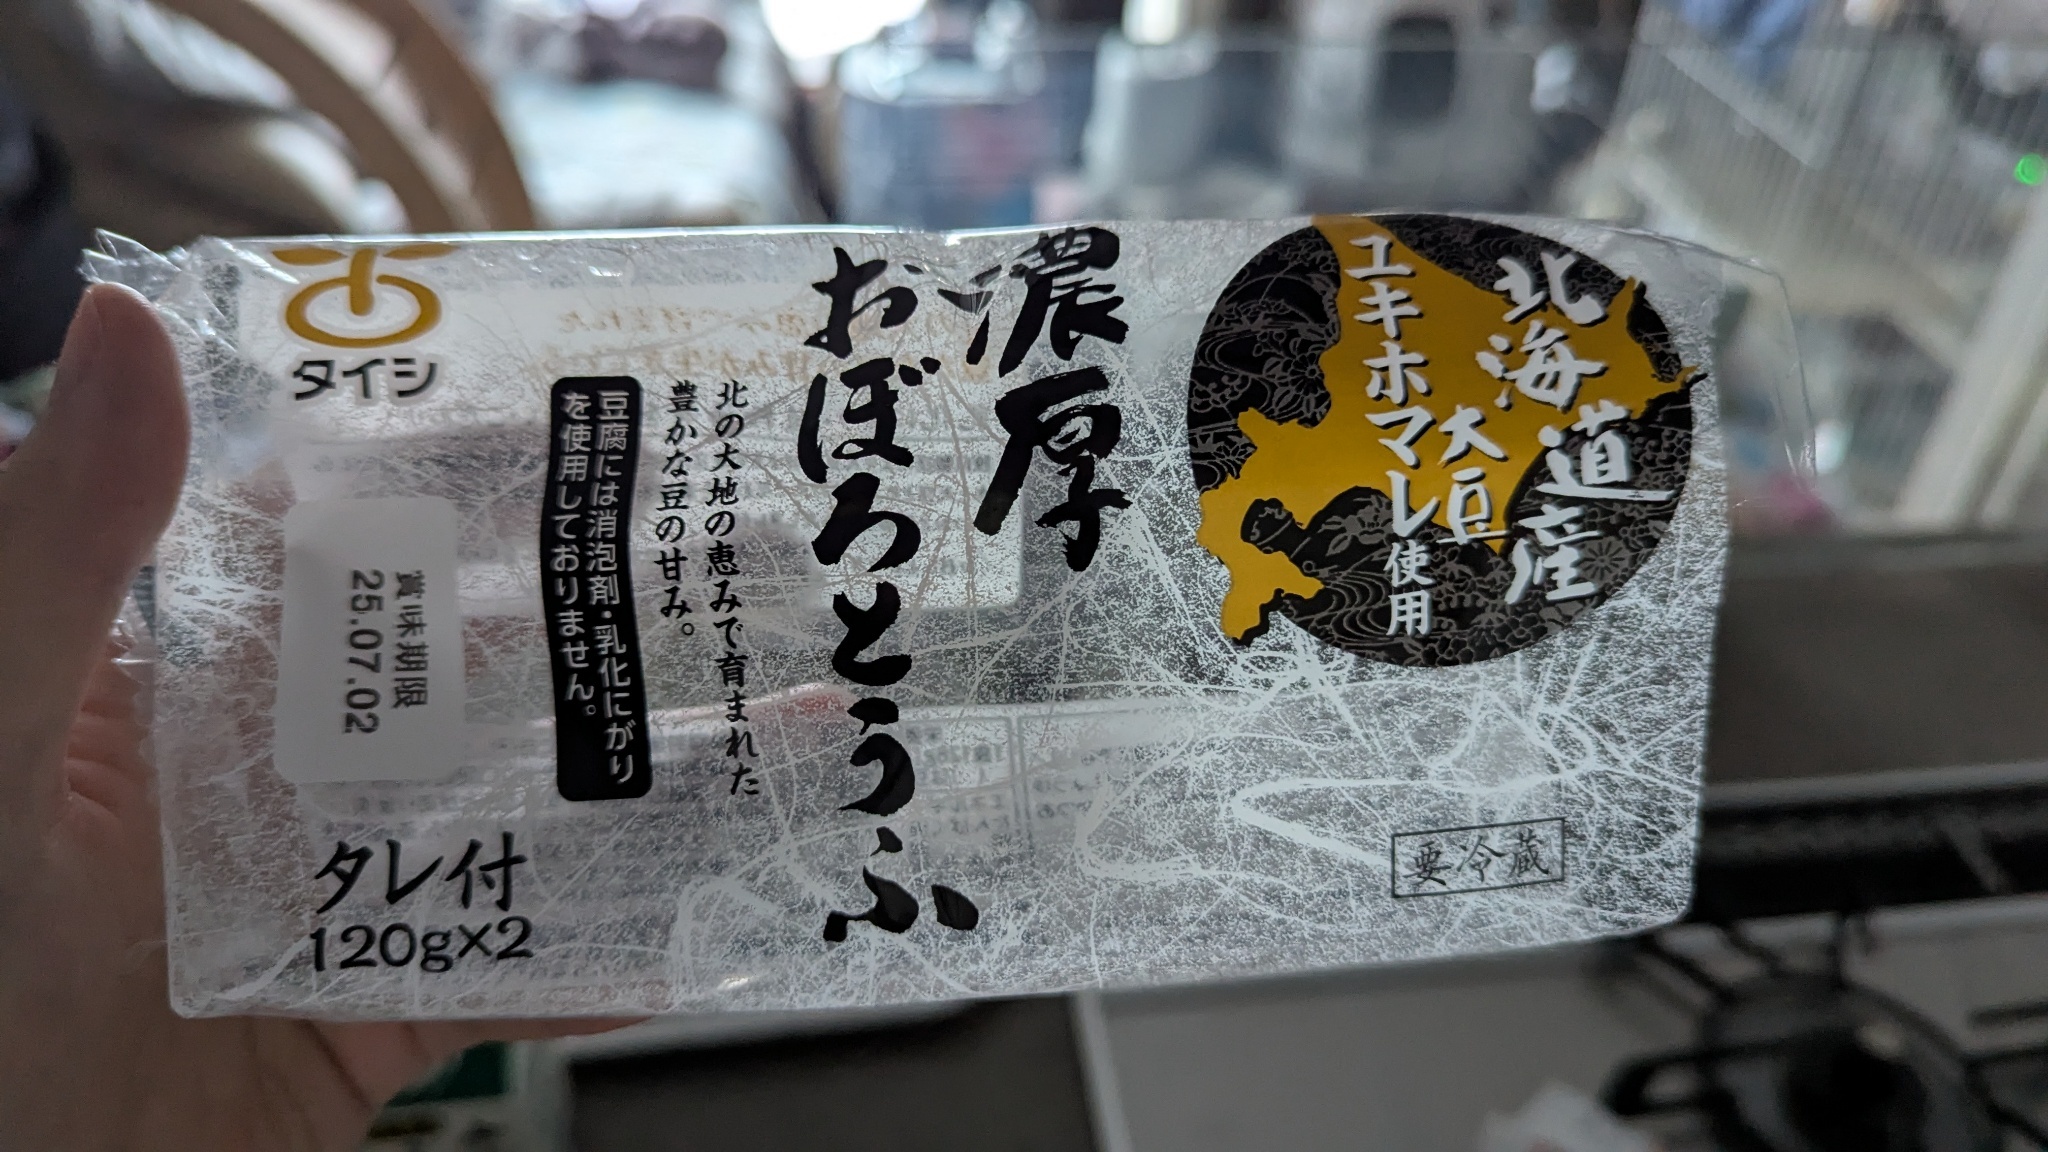 北海道産
大豆
ユキホマレ使用
濃厚
おぼろとうふ
北の大地の恵みで育まれた
豊かな豆の甘み。
豆腐には消泡剤・乳化にがり
を使用しておりません。
タイシ
賞味期限
25.07.02
タレ付
120g×2
要冷蔵